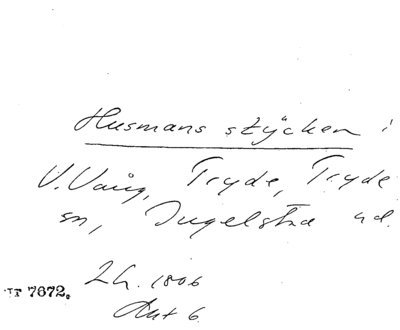 Husmans stycken i
V. Vång, Tryde, Tryde
sn, Ingelstad hd.
Lh. 1806
Akt 6
7672.